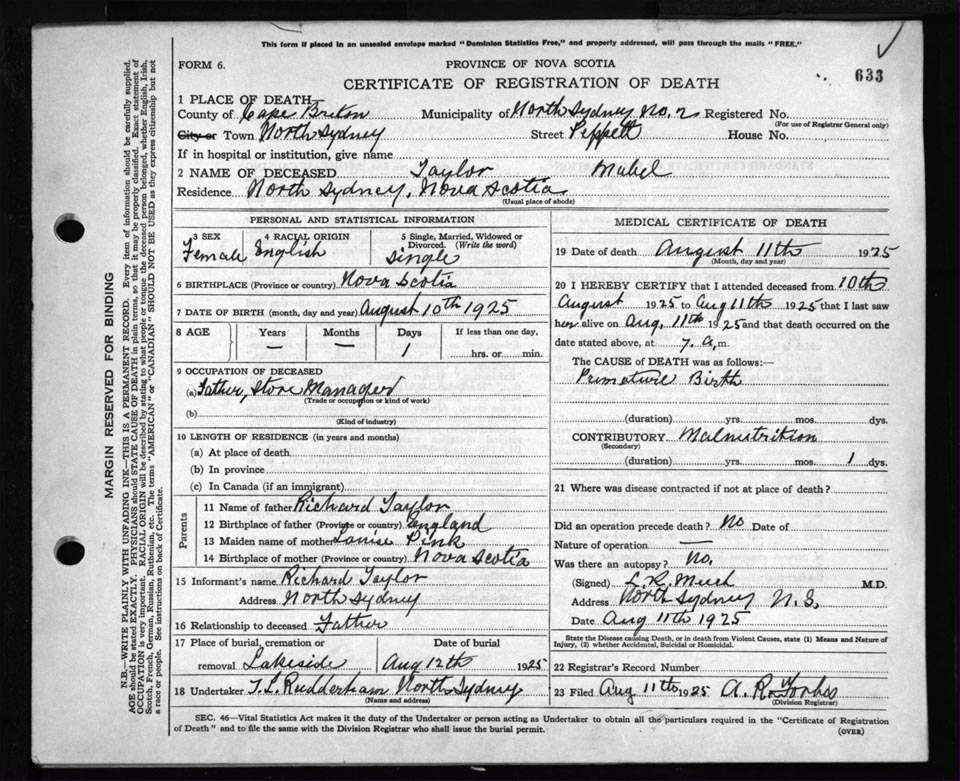 This form if placed in an unsealed envelope marked "Dominion Statistics Free," and properly addressed, will pass through the mails "FREE."
FORM 6.
PROVINCE OF NOVA SCOTIA
633
CERTIFICATE OF REGISTRATION OF DEATH
1 PLACE OF DEATH
County of Cape Breton Municipality of North Sydney No. 2 Registered No.
(For use of Registrar General only)
City or Town North Sydney Street Peppett House No.
If in hospital or institution, give name
2 NAME OF DECEASED Taylor Mabel
Residence North Sydney, Nova Scotia
(Usual place of abode)
PERSONAL AND STATISTICAL INFORMATION
3 SEX 4 RACIAL ORIGIN 5 Single, Married, Widowed or Divorced. (Write the word)
Female English Single
6 BIRTHPLACE (Province or country) Nova Scotia
7 DATE OF BIRTH (month, day and year) August 10th 1925
8 AGE Years Months Days If less than one day,
— — 1 hrs. or min.
9 OCCUPATION OF DECEASED
(a) Father, Store Manager
(Trade or occupation or kind of work)
(b)
(Kind of industry)
10 LENGTH OF RESIDENCE (in years and months)
(a) At place of death
(b) In province
(c) In Canada (if an immigrant)
Parents
11 Name of father Richard Taylor
12 Birthplace of father (Province or country) England
13 Maiden name of mother Louise Pink
14 Birthplace of mother (Province or country) Nova Scotia
15 Informant's name Richard Taylor
Address North Sydney
16 Relationship to deceased Father
17 Place of burial, cremation or removal Lakeside Date of burial Aug 12th 1925
18 Undertaker T. L. Rudderham North Sydney
(Name and address)
MEDICAL CERTIFICATE OF DEATH
19 Date of death August 11th 1925
(Month, day and year)
20 I HEREBY CERTIFY that I attended deceased from 10th
August 1925 to Aug 11th 1925 that I last saw
her alive on Aug, 11th 1925 and that death occurred on the
date stated above, at 7. a.m.
The CAUSE of DEATH was as follows:—
Primature Birth
(duration) yrs. mos. dys.
CONTRIBUTORY Malnutrition
(Secondary)
(duration) yrs. mos. 1 dys.
21 Where was disease contracted if not at place of death?
Did an operation precede death? No Date of
Nature of operation —
Was there an autopsy? No.
(Signed) L. R. M.D.
Address North Sydney N.S,
Date Aug 11th 1925
State the Disease causing Death, or in death from Violent Causes, state (1) Means and Nature of
Injury, (2) whether Accidental, Suicidal or Homicidal.
22 Registrar's Record Number
23 Filed Aug 11th 1925 A. R. Forbes
(Division Registrar)
SEC. 46—Vital Statistics Act makes it the duty of the Undertaker or person acting as Undertaker to obtain all the particulars required in the "Certificate of Registration
of Death" and to file the same with the Division Registrar who shall issue the burial permit.
(OVER)
MARGIN RESERVED FOR BINDING
N.B.—WRITE PLAINLY WITH UNFADING INK—THIS IS A PERMANENT RECORD. Every item of information should be carefully supplied.
AGE should be stated EXACTLY. PHYSICIANS should STATE CAUSE OF DEATH in plain terms, so that it may be properly classified. Exact statement of
OCCUPATION is very important. RACIAL ORIGIN will be described by stating to what people or tongue the deceased person belonged, whether English, Irish,
Scotch, French, German, Russian, Ruthenian, etc. The terms "AMERICAN" or "CANADIAN" SHOULD NOT BE USED as they express citizenship but not
a race or people. See instructions on back of Certificate.